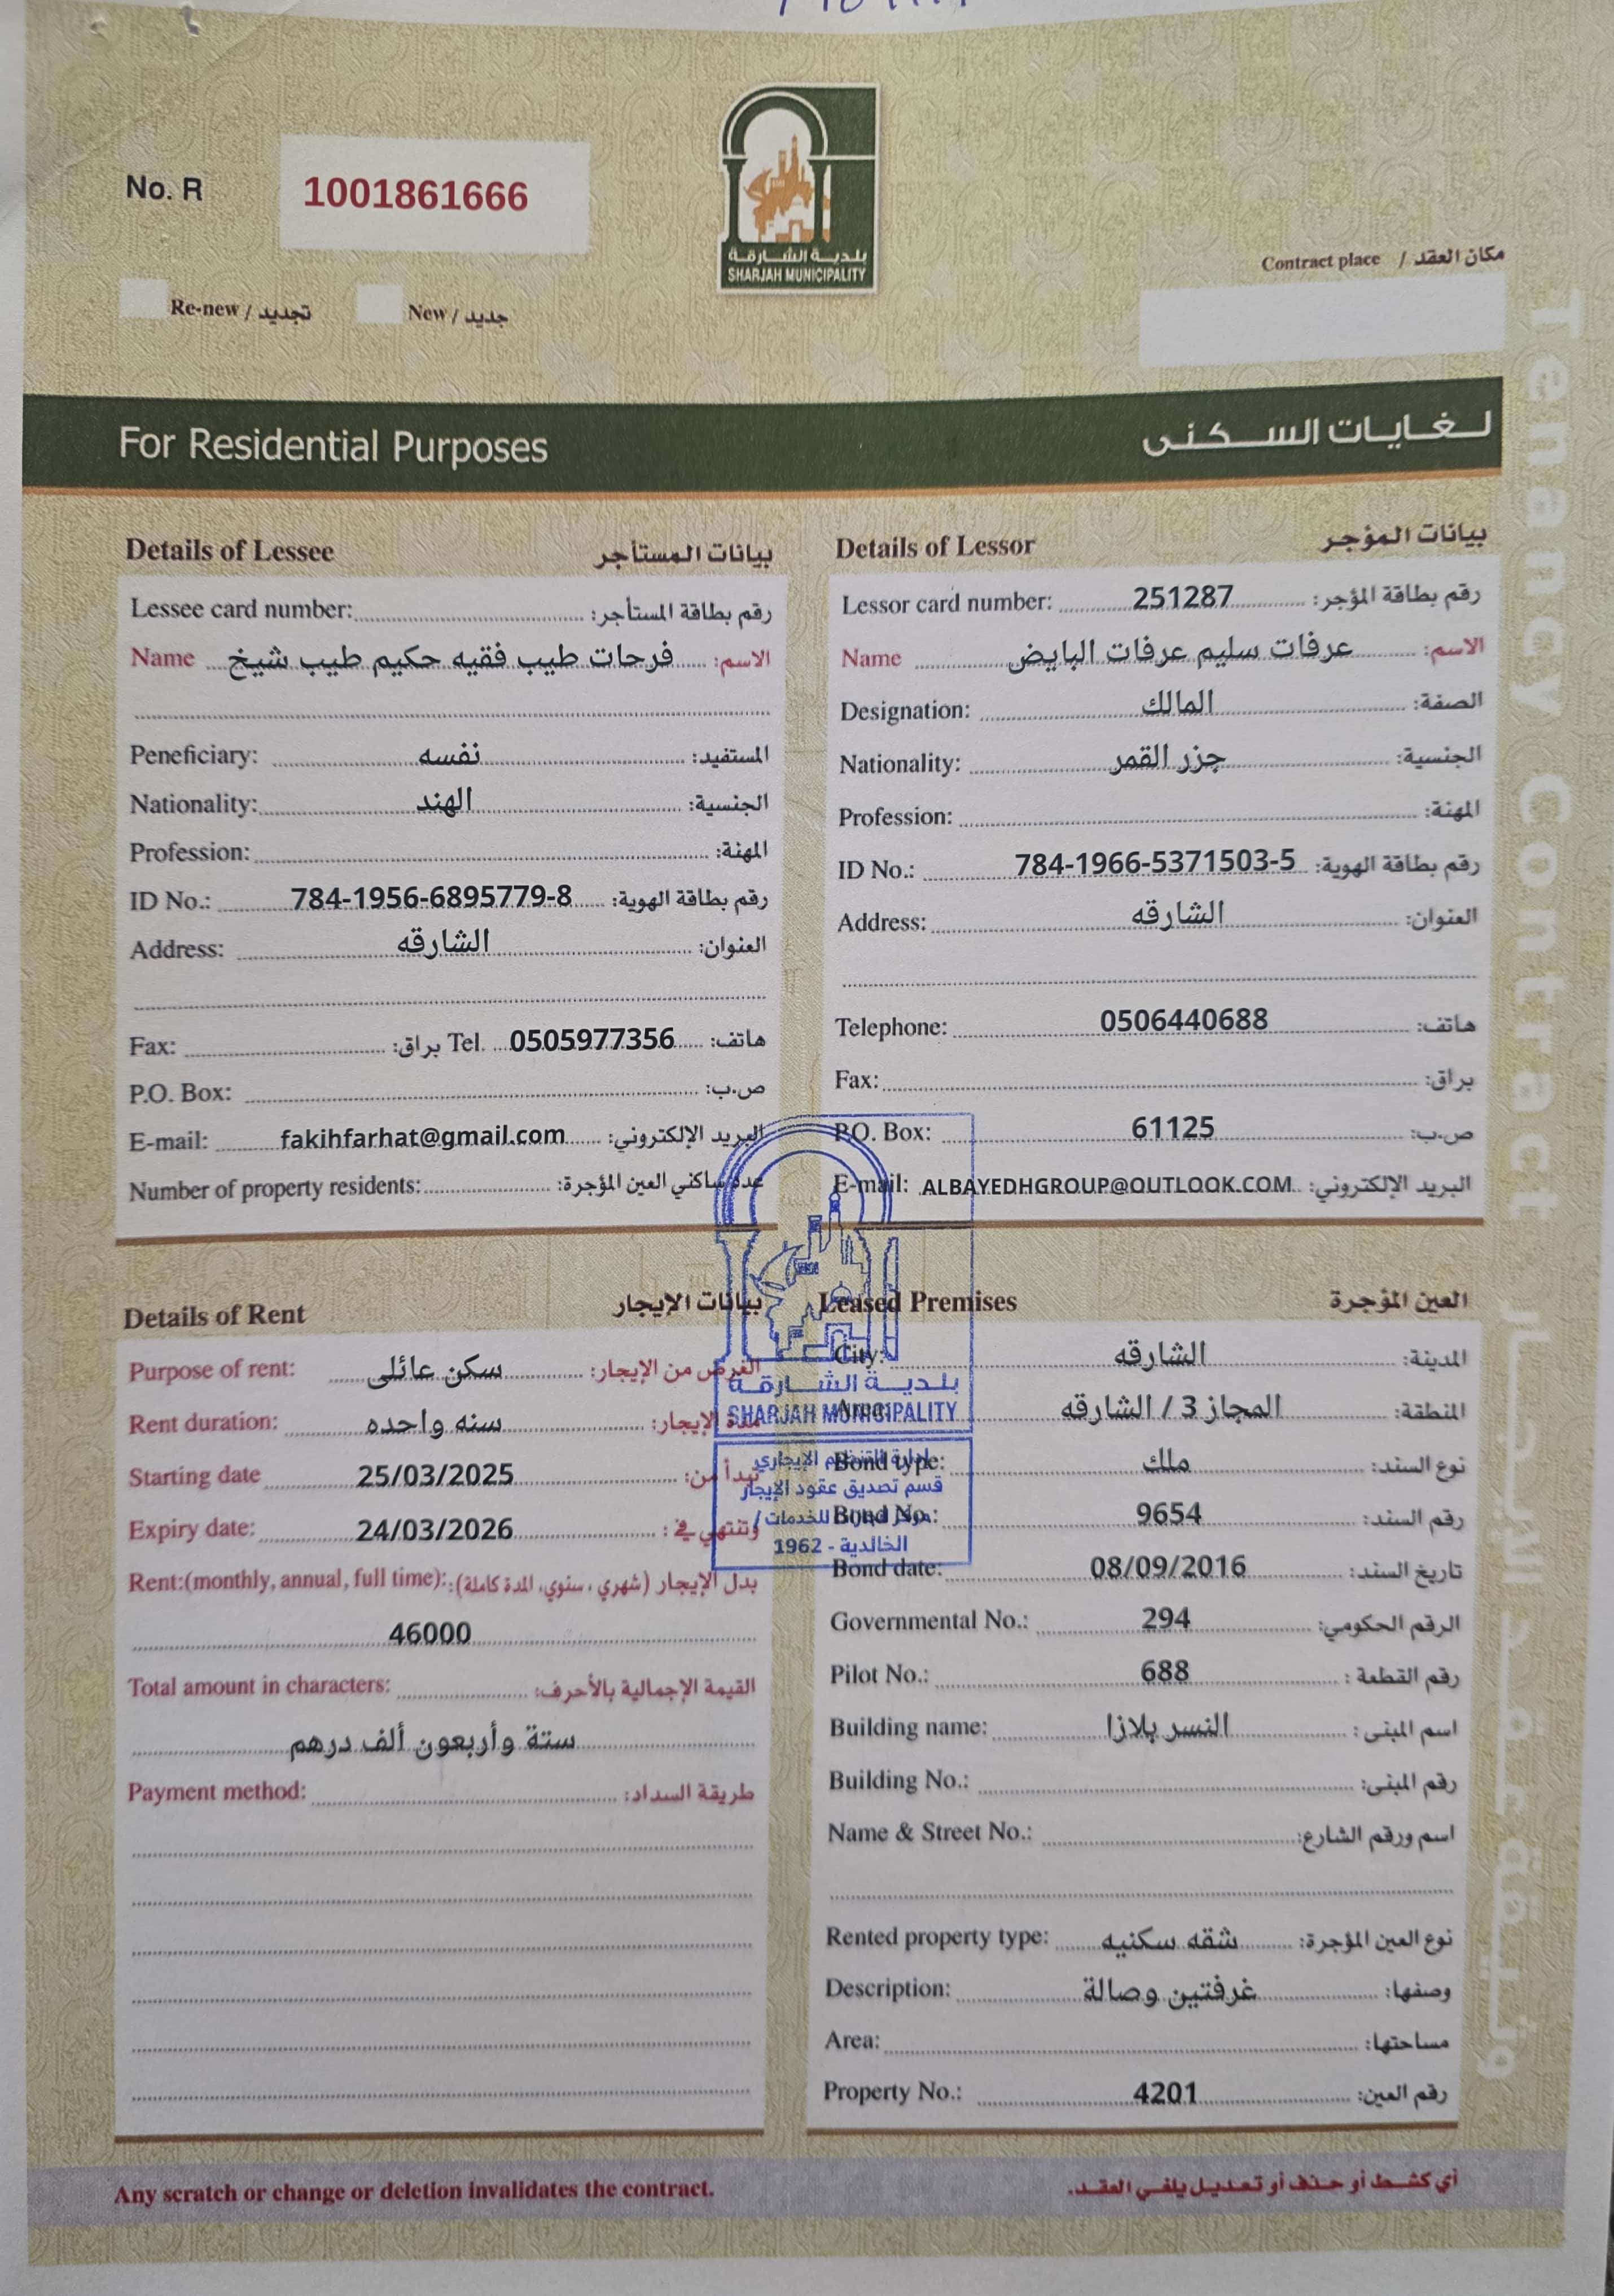 No. R 1001861666
بلدية الشارقة
SHARJAH MUNICIPALITY
Contract place / مكان العقد
Re-new / تجديد New / جديد
For Residential Purposes لغايات السكنى
Details of Lessee بيانات المستأجر
Lessee card number: رقم بطاقة المستأجر:
Name فرحات طيب فقيه حكيم طيب شيخ الاسم:
Peneficiary: نفسه المستفيد:
Nationality: الهند الجنسية:
Profession: المهنة:
ID No.: 784-1956-6895779-8 رقم بطاقة الهوية:
Address: الشارقه العنوان:
Fax: براق: Tel. 0505977356 هاتف:
P.O. Box: ص.ب:
E-mail: fakihfarhat@gmail.com البريد الإلكتروني:
Number of property residents: عدد ساكني العين المؤجرة:
Details of Lessor بيانات المؤجر
Lessor card number: 251287 رقم بطاقة المؤجر:
Name عرفات سليم عرفات البايض الاسم:
Designation: المالك الصفة:
Nationality: جزر القمر الجنسية:
Profession: المهنة:
ID No.: 784-1966-5371503-5 رقم بطاقة الهوية:
Address: الشارقه العنوان:
Telephone: 0506440688 هاتف:
Fax: براق:
P.O. Box: 61125 ص.ب:
E-mail: ALBAYEDHGROUP@OUTLOOK.COM البريد الإلكتروني:
Details of Rent بيانات الإيجار
Purpose of rent: سكن عائلى الغرض من الإيجار:
Rent duration: سنه واحده مدة الإيجار:
Starting date 25/03/2025 تبدأ من:
Expiry date: 24/03/2026 وتنتهي في:
Rent:(monthly, annual, full time): بدل الإيجار (شهري ، سنوي، المدة كاملة):
46000
Total amount in characters: القيمة الإجمالية بالأحرف:
ستة وأربعون ألف درهم
Payment method: طريقة السداد:
Leased Premises العين المؤجرة
City: الشارقه المدينة:
Area: المجاز 3 / الشارقه المنطقة:
Bond type: ملك نوع السند:
Bond No.: 9654 رقم السند:
Bond date: 08/09/2016 تاريخ السند:
Governmental No.: 294 الرقم الحكومي:
Pilot No.: 688 رقم القطعة :
Building name: النسر بلازا اسم المبنى :
Building No.: رقم المبنى:
Name & Street No.: اسم ورقم الشارع:
Rented property type: شقه سكنيه نوع العين المؤجرة:
Description: غرفتين وصالة وصفها:
Area: مساحتها:
Property No.: 4201 رقم العين:
بلدية الشارقة
SHARJAH MUNICIPALITY
إدارة التنظيم الإيجاري
قسم تصديق عقود الإيجار
للخدمات /
الخالدية - 1962
Any scratch or change or deletion invalidates the contract. أي كشط أو حذف أو تعديل يلغي العقد.
Tenancy Contract